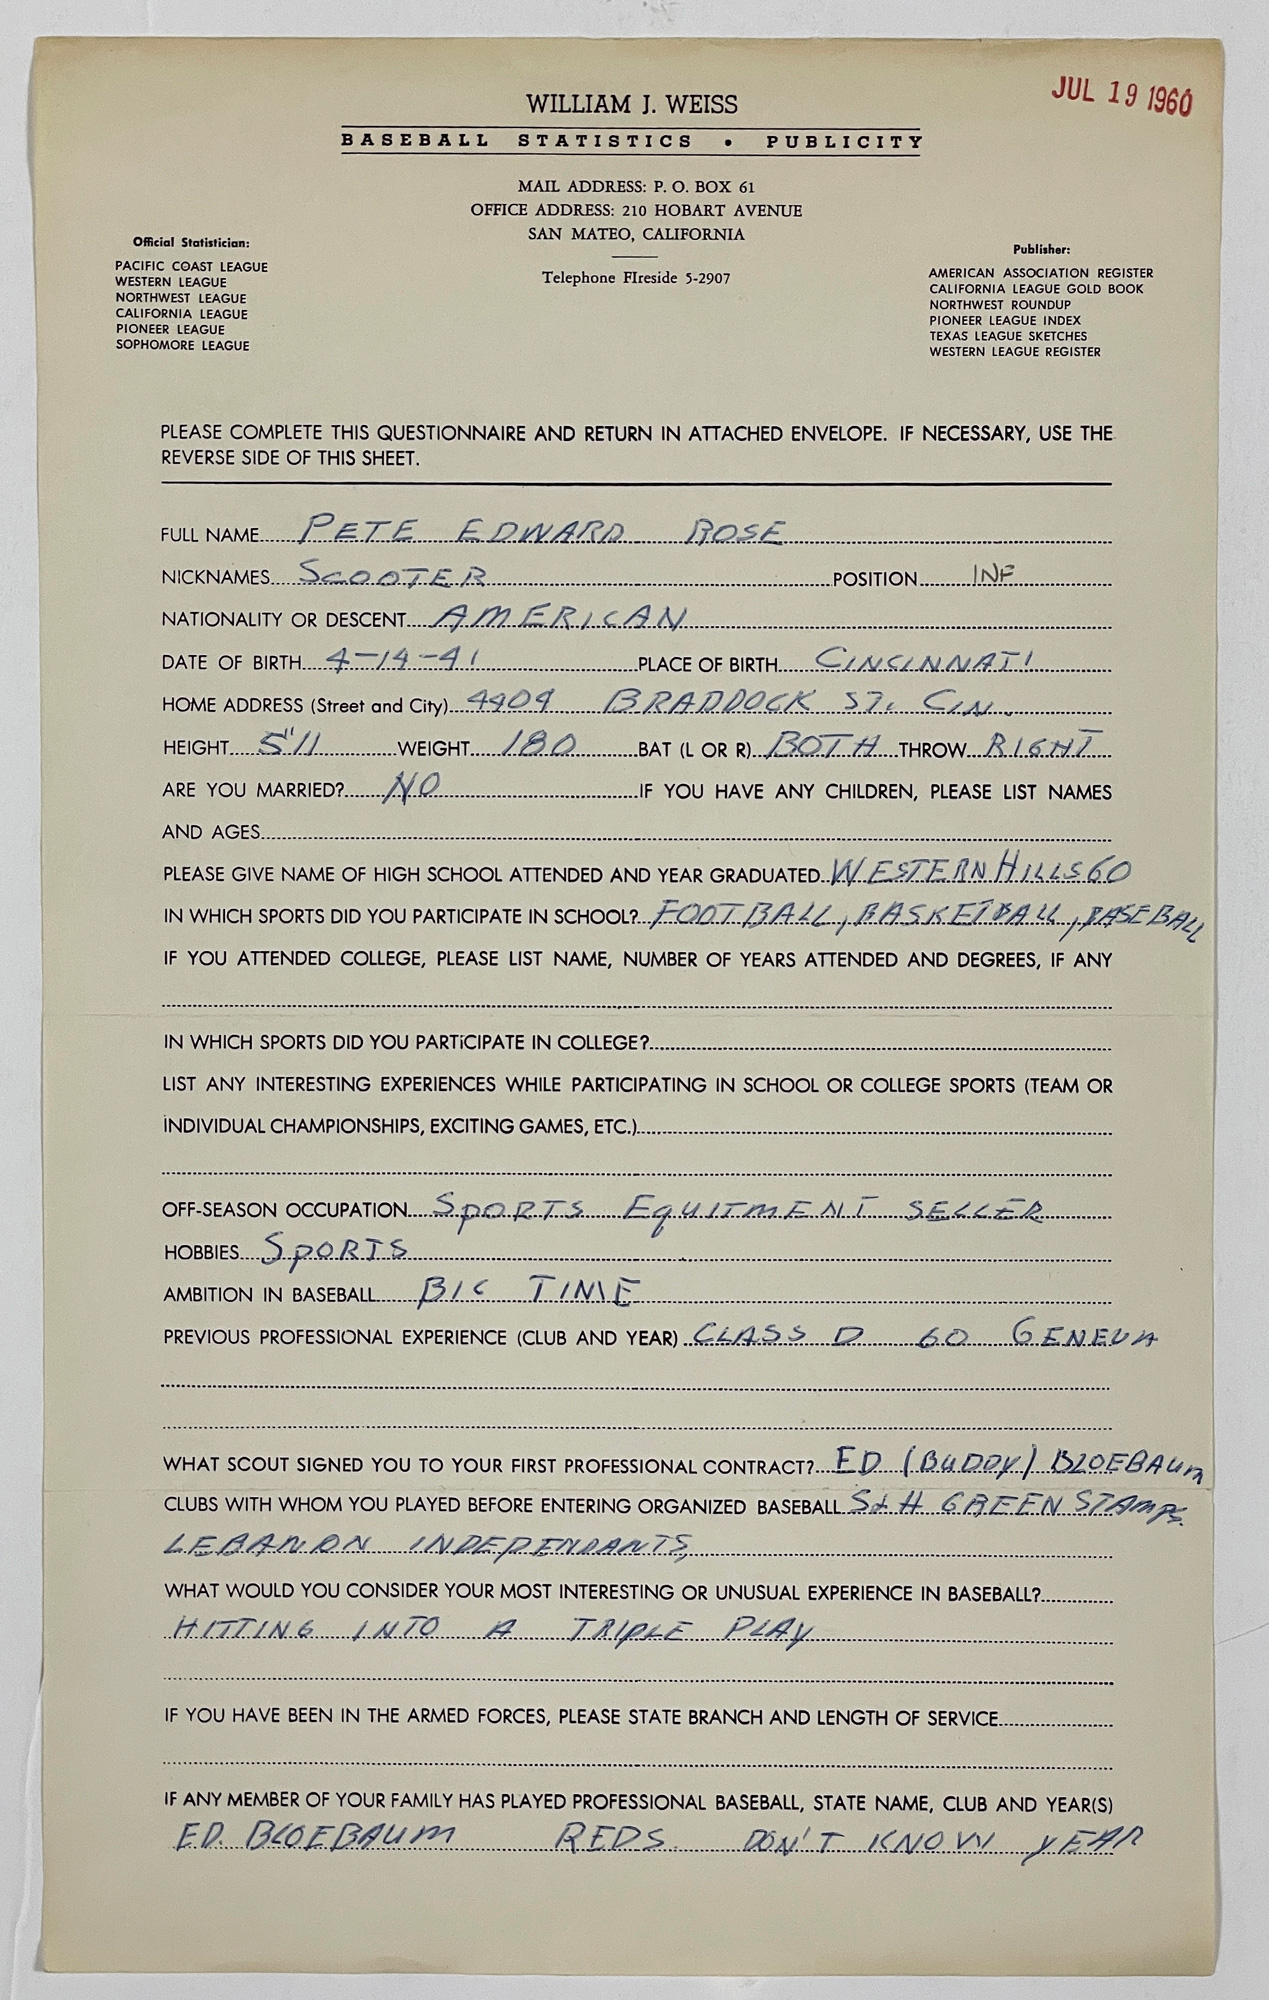 JUL 19 1960
WILLIAM J. WEISS
BASEBALL STATISTICS • PUBLICITY
MAIL ADDRESS: P. O. BOX 61
OFFICE ADDRESS: 210 HOBART AVENUE
SAN MATEO, CALIFORNIA
Telephone FIreside 5-2907
Official Statistician:
PACIFIC COAST LEAGUE
WESTERN LEAGUE
NORTHWEST LEAGUE
CALIFORNIA LEAGUE
PIONEER LEAGUE
SOPHOMORE LEAGUE
Publisher:
AMERICAN ASSOCIATION REGISTER
CALIFORNIA LEAGUE GOLD BOOK
NORTHWEST ROUNDUP
PIONEER LEAGUE INDEX
TEXAS LEAGUE SKETCHES
WESTERN LEAGUE REGISTER
PLEASE COMPLETE THIS QUESTIONNAIRE AND RETURN IN ATTACHED ENVELOPE. IF NECESSARY, USE THE
REVERSE SIDE OF THIS SHEET.
FULL NAME PETE EDWARD ROSE
NICKNAMES SCOOTER POSITION INF
NATIONALITY OR DESCENT AMERICAN
DATE OF BIRTH 4-14-41 PLACE OF BIRTH CINCINNATI
HOME ADDRESS (Street and City) 4404 BRADDOCK ST. CIN.
HEIGHT 5"11 WEIGHT 180 BAT (L OR R) BOTH THROW RIGHT
ARE YOU MARRIED? NO IF YOU HAVE ANY CHILDREN, PLEASE LIST NAMES
AND AGES
PLEASE GIVE NAME OF HIGH SCHOOL ATTENDED AND YEAR GRADUATED WESTERN HILLS 60
IN WHICH SPORTS DID YOU PARTICIPATE IN SCHOOL? FOOTBALL, BASKETBALL, BASEBALL
IF YOU ATTENDED COLLEGE, PLEASE LIST NAME, NUMBER OF YEARS ATTENDED AND DEGREES, IF ANY
IN WHICH SPORTS DID YOU PARTICIPATE IN COLLEGE?
LIST ANY INTERESTING EXPERIENCES WHILE PARTICIPATING IN SCHOOL OR COLLEGE SPORTS (TEAM OR
INDIVIDUAL CHAMPIONSHIPS, EXCITING GAMES, ETC.)
OFF-SEASON OCCUPATION SPORTS EQUITMENT SELLER
HOBBIES SPORTS
AMBITION IN BASEBALL BIG TIME
PREVIOUS PROFESSIONAL EXPERIENCE (CLUB AND YEAR) CLASS D 60 GENEVA
WHAT SCOUT SIGNED YOU TO YOUR FIRST PROFESSIONAL CONTRACT? ED (BUDDY) BLOEBAUM
CLUBS WITH WHOM YOU PLAYED BEFORE ENTERING ORGANIZED BASEBALL S&H GREEN STAMPS.
LEBANON INDEPENDANTS,
WHAT WOULD YOU CONSIDER YOUR MOST INTERESTING OR UNUSUAL EXPERIENCE IN BASEBALL?
HITTING INTO A TRIPLE PLAY
IF YOU HAVE BEEN IN THE ARMED FORCES, PLEASE STATE BRANCH AND LENGTH OF SERVICE
IF ANY MEMBER OF YOUR FAMILY HAS PLAYED PROFESSIONAL BASEBALL, STATE NAME, CLUB AND YEAR(S)
ED. BLOEBAUM REDS. DON'T KNOW YEAR